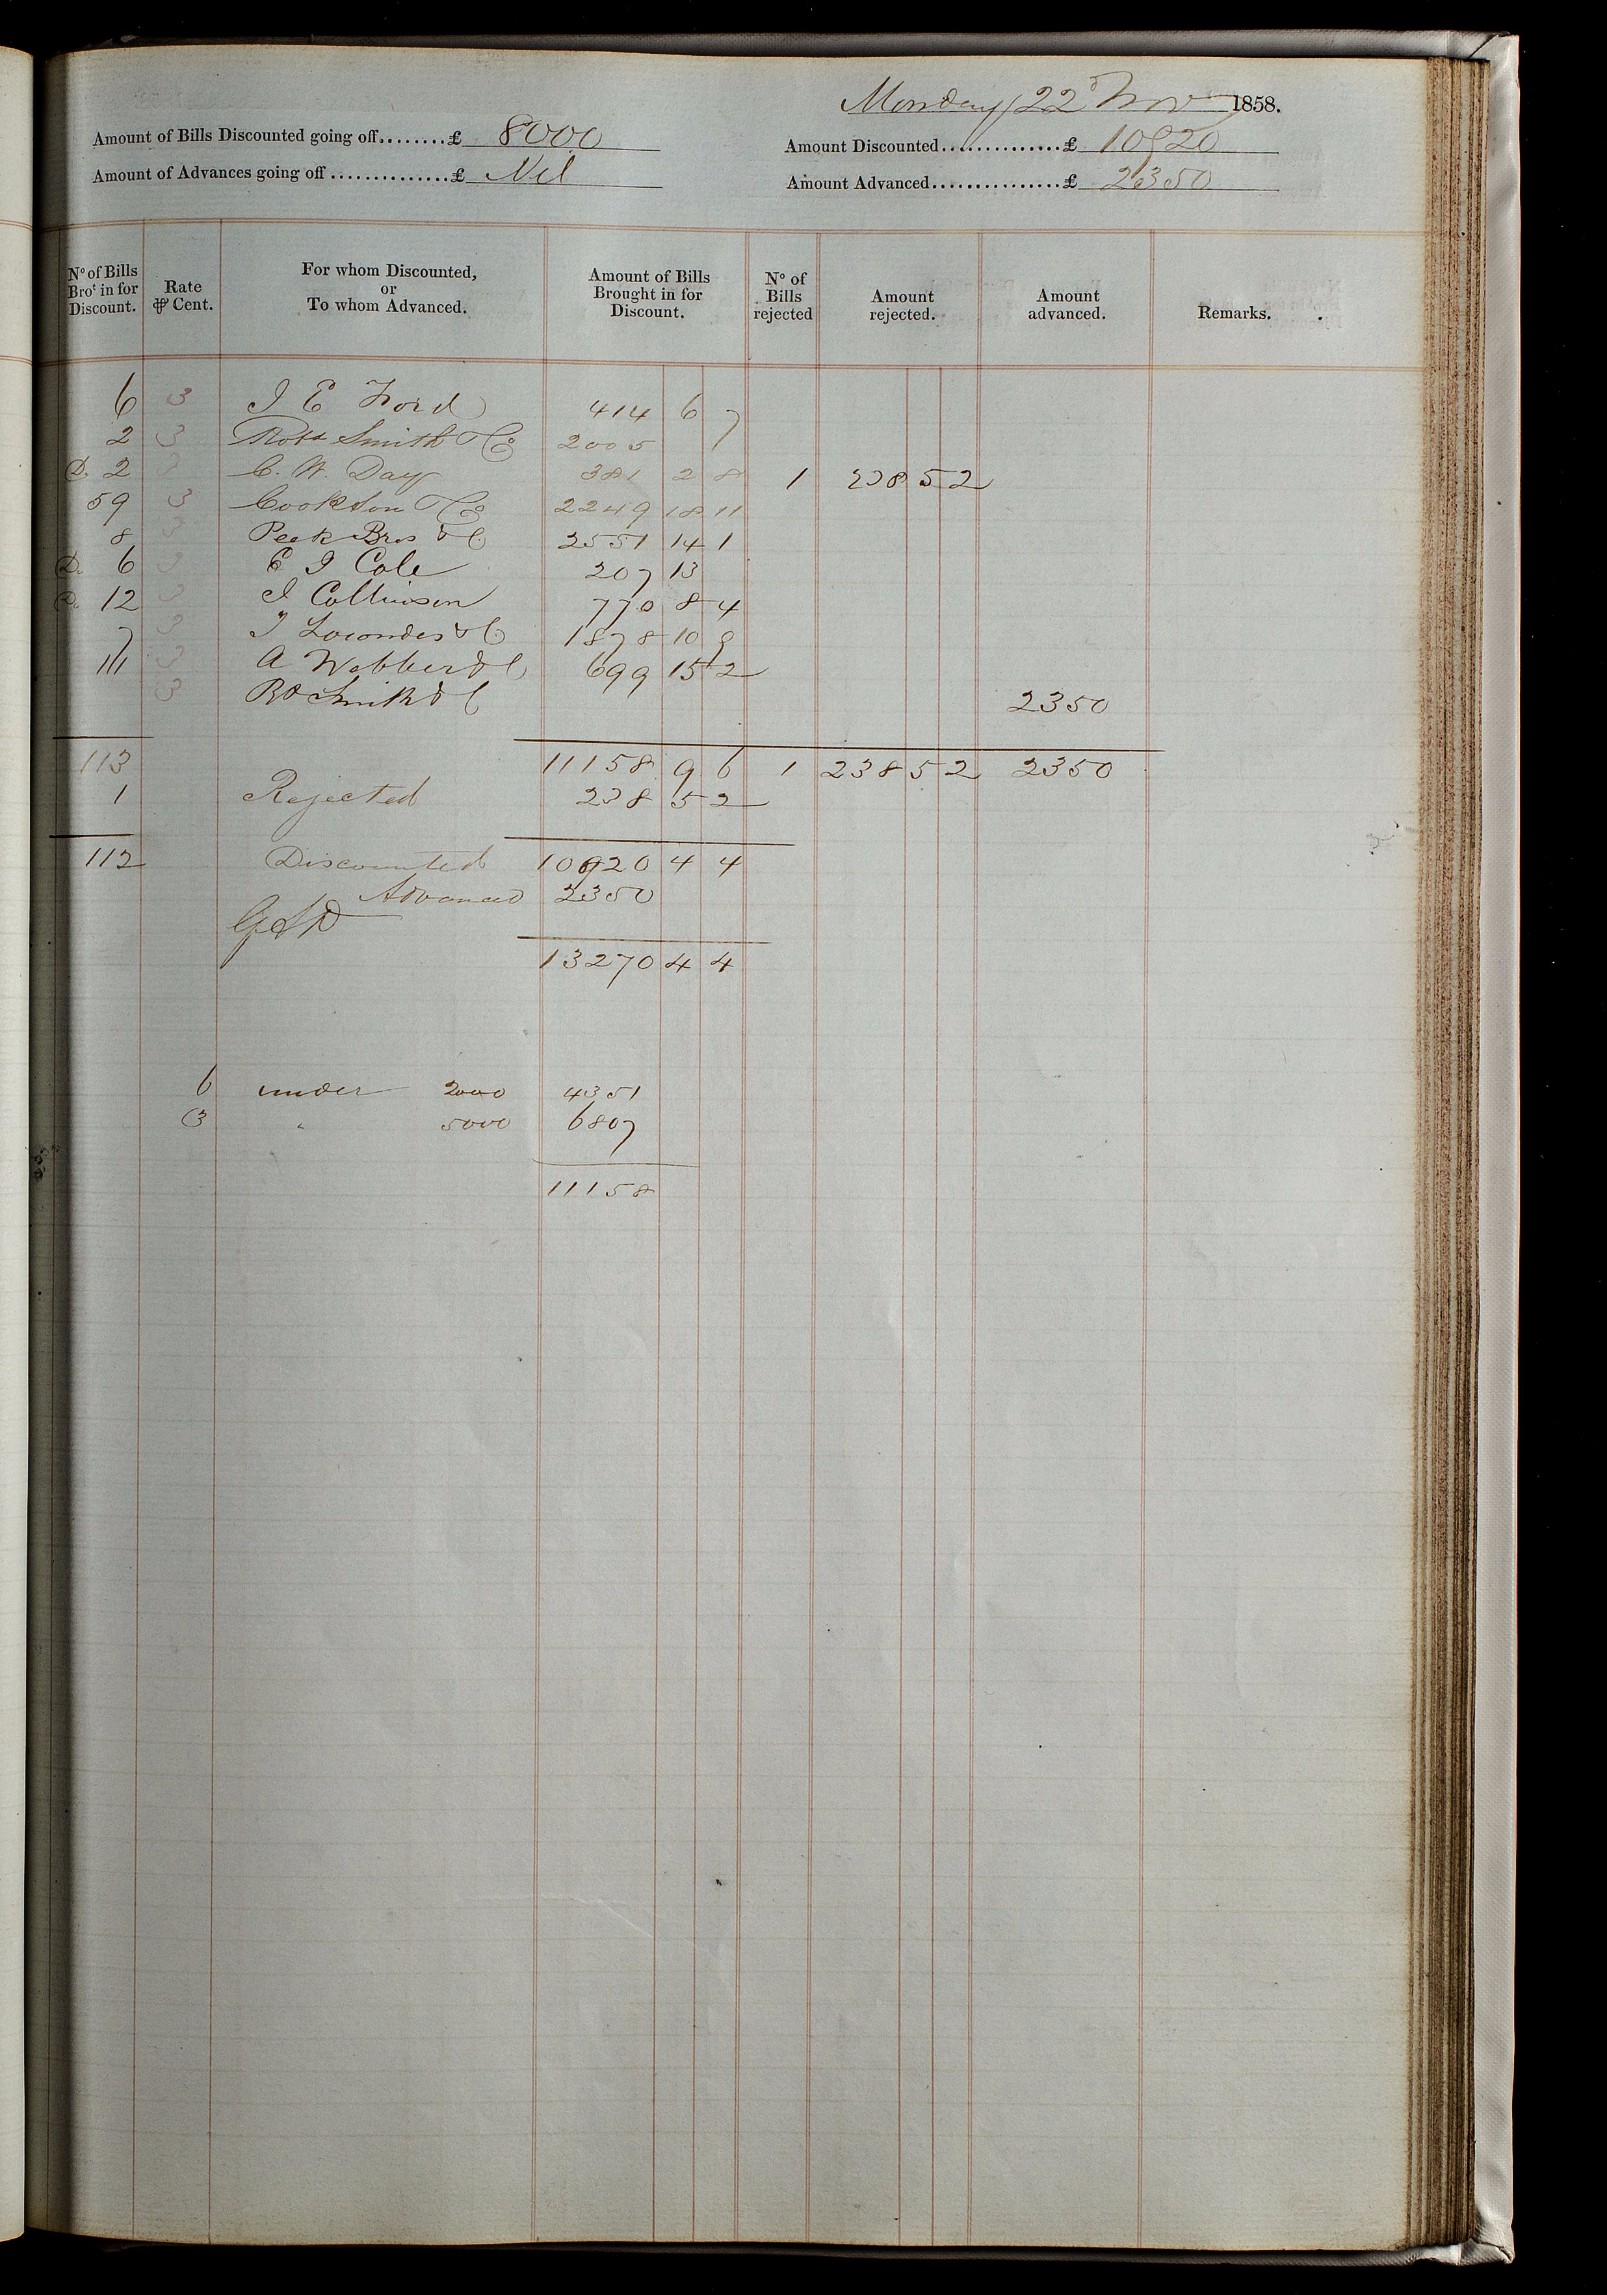 Monday 22d Nov 1858.
Amount of Bills Discounted going off........£ 8000
Amount Discounted..............£ 10920
Amount of Advances going off..............£ Nil
Amount Advanced................£ 2350
No of Bills Brot in for Discount. Rate ⅌ Cent. For whom Discounted, or To whom Advanced. Amount of Bills Brought in for Discount. No of Bills rejected Amount rejected. Amount advanced. Remarks.
6 3 J E Ford 414 6 7
2 3 Robt Smith & Co 2005 7
D. 2 3 C. W. Day 381 2 8 1 238 5 2
59 3 Cookson & Co 2249 18 11
8 3 Peek Bros & C 2551 14 1
D. 6 3 E J Cole 207 13
D. 12 3 J Collinson 770 8 4
7 3 J Lowndes & C 1878 10 9
11 3 A Webber & C 699 15 2
3 Rt Smith & C 2350
113 11158 9 6 1 238 5 2 2350
1 Rejected 238 5 2
112 Discounted 10920 4 4
Advanced 2350
13270 4 4
6 under 2000 4351
3 " 5000 6807
11158